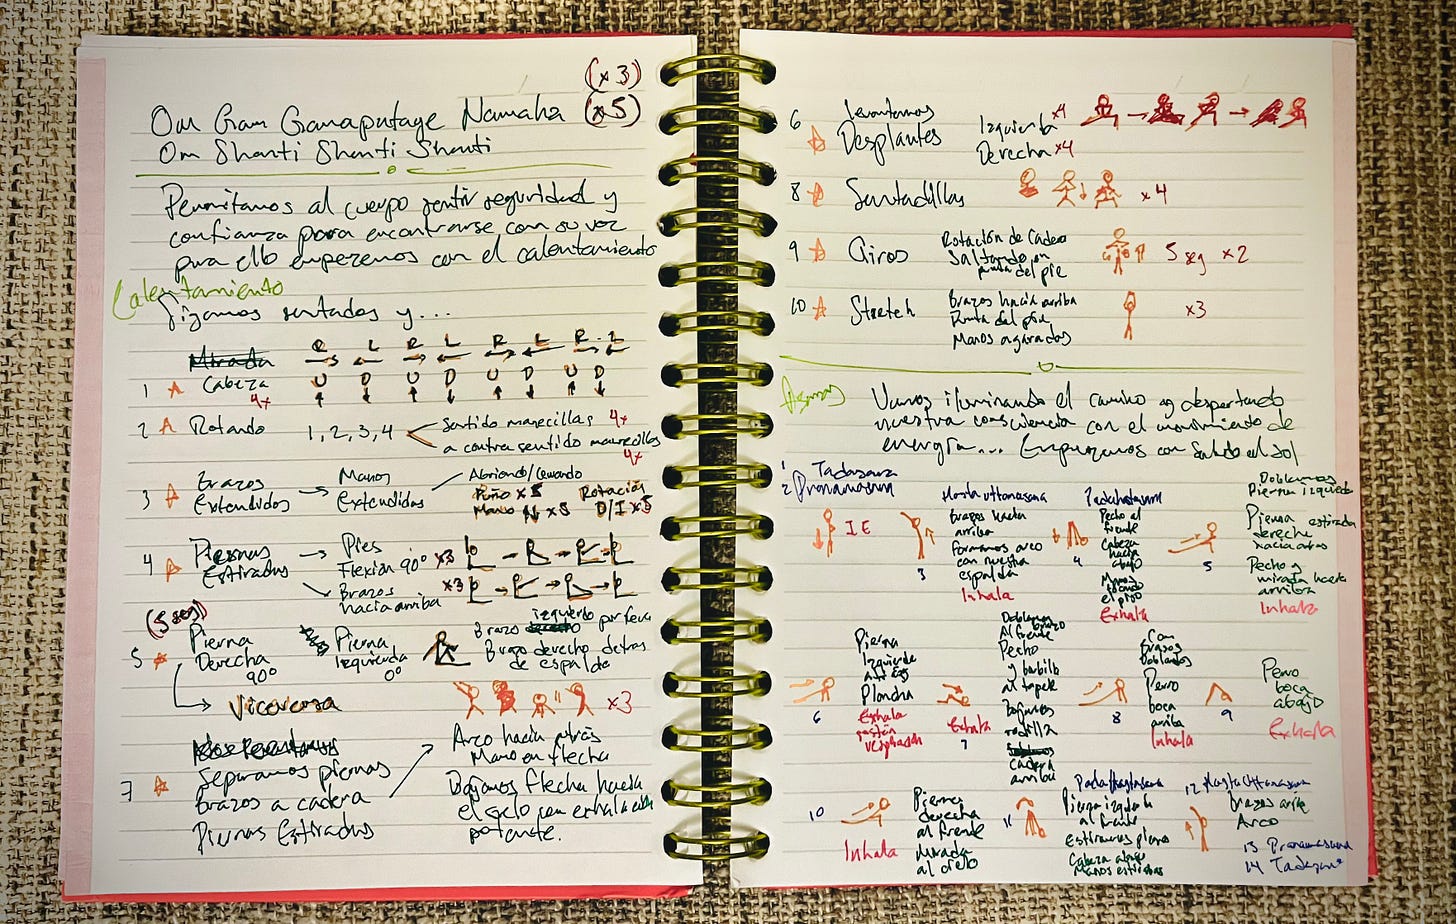 (x3)
Om Gam Ganaputaye Namaha (x5)
Om Shanti Shanti Shanti
Permitamos al cuerpo sentir seguridad y
confianza para encontrarse con su voz
para ello empezemos con el calentamiento
Calentamiento
Sigamos sentados y...
Mirada
R L R L R L R L
1 Cabeza U D U D U D U D
4x
2 Rotando 1, 2, 3, 4
Sentido manecillas 4x
a contra sentido manecillas
4x
3 Brazos
Extendidos
Manos
Extendidas
Abriendo/Cerrando
Puño x5
Mano x5
Rotación
D/I x5
4 Piernas
Estiradas
Pies
Flexión 90° x3
Brazos
hacia arriba x3
(5 seg)
5 Pierna
Derecha
90°
Pierna
Izquierda
0°
izquierdo
Brazo por fuera
Brazo derecho detras
de espalda
Viceversa
x3
7 Separamos piernas
Brazos a cadera
Piernas Estiradas
Arco hacia atrás
Mano en flecha
Bajamos flecha hacia
el suelo con exhalación
potente.
6 Levantamos
Desplantes
Izquierda x4
Derecha x4
8 Sentadillas x4
9 Giros
Rotación de Cadera
Saltando en
punta del pie
5 seg x2
10 Stretch
Brazos hacia arriba
Punta del pie
Manos agarradas
x3
Asanas
Vamos iluminando el camino y despertando
nuestra consciencia con el movimiento de
energía... Empezamos con Saludo al sol
1 Tadasana
2 Pranamasana
I E
Hasta uttanasana
Brazos hacia
arriba
formamos arco
con nuestra
espalda
Inhala
3
Padahastasana
Pecho al
frente
Cabeza
hacia
abajo
Manos
tocando
el piso
Exhala
4
Doblamos
Pierna izquierda
Pierna estirada
derecha
hacia atras
Pecho y
mirada hacia
arriba
Inhala
5
Pierna
Izquierda
atrás
Plancha
Exhala
6
Doblamos brazo
Al frente
Pecho
y barbilla
al tapete
Bajamos
rodilla
cadera
arriba
Exhala
7
Con
Brazos
Doblados
Perro
boca
arriba
Inhala
8
Perro
boca
abajo
Exhala
9
10
Pierna
derecha
al frente
Mirada
al cielo
Inhala
11
Padahastasana
Pierna izquierda
al frente
estiramos piernas
Cabeza abajo
Manos estiradas
12 Hasta Uttanasana
Brazos arriba
Arco
13 Pranamasana
14 Tadasana